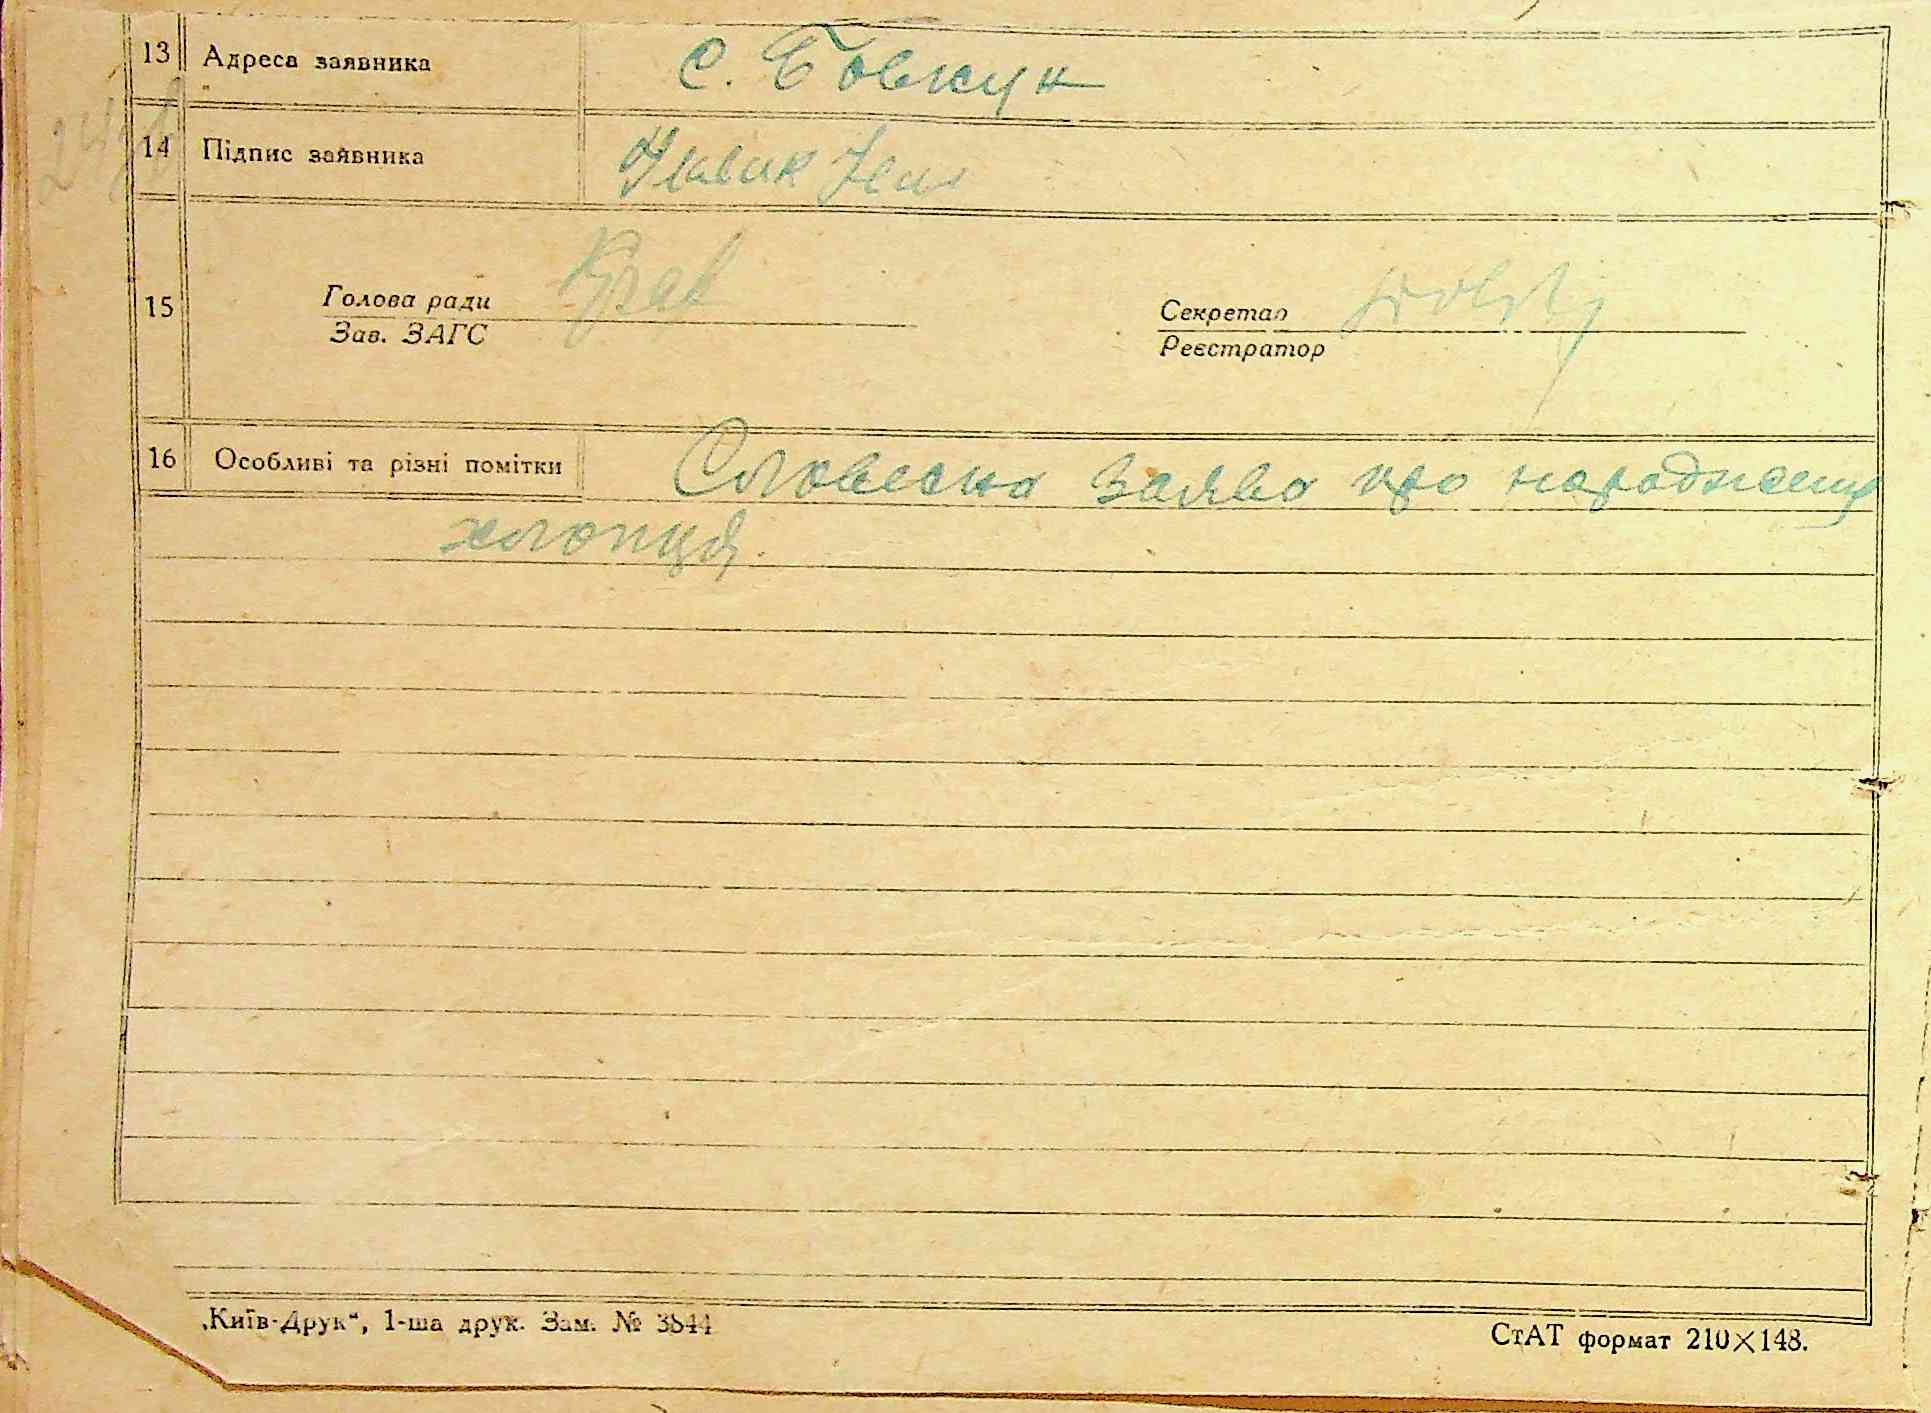 13 Адреса заявника с. Бовкун
14 Підпис заявника
15 Голова ради Секретар
Зав. ЗАГС Реєстратор
16 Особливі та різні помітки Словесна заява про народження
хлопця.
„Київ-Друк“, 1-ша друк. Зам. № 3844
СтАТ формат 210×148.